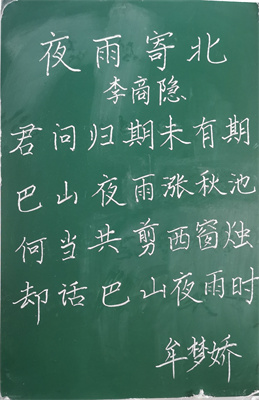 夜雨寄北
李商隐
君问归期未有期
巴山夜雨涨秋池
何当共剪西窗烛
却话巴山夜雨时
牟梦娇